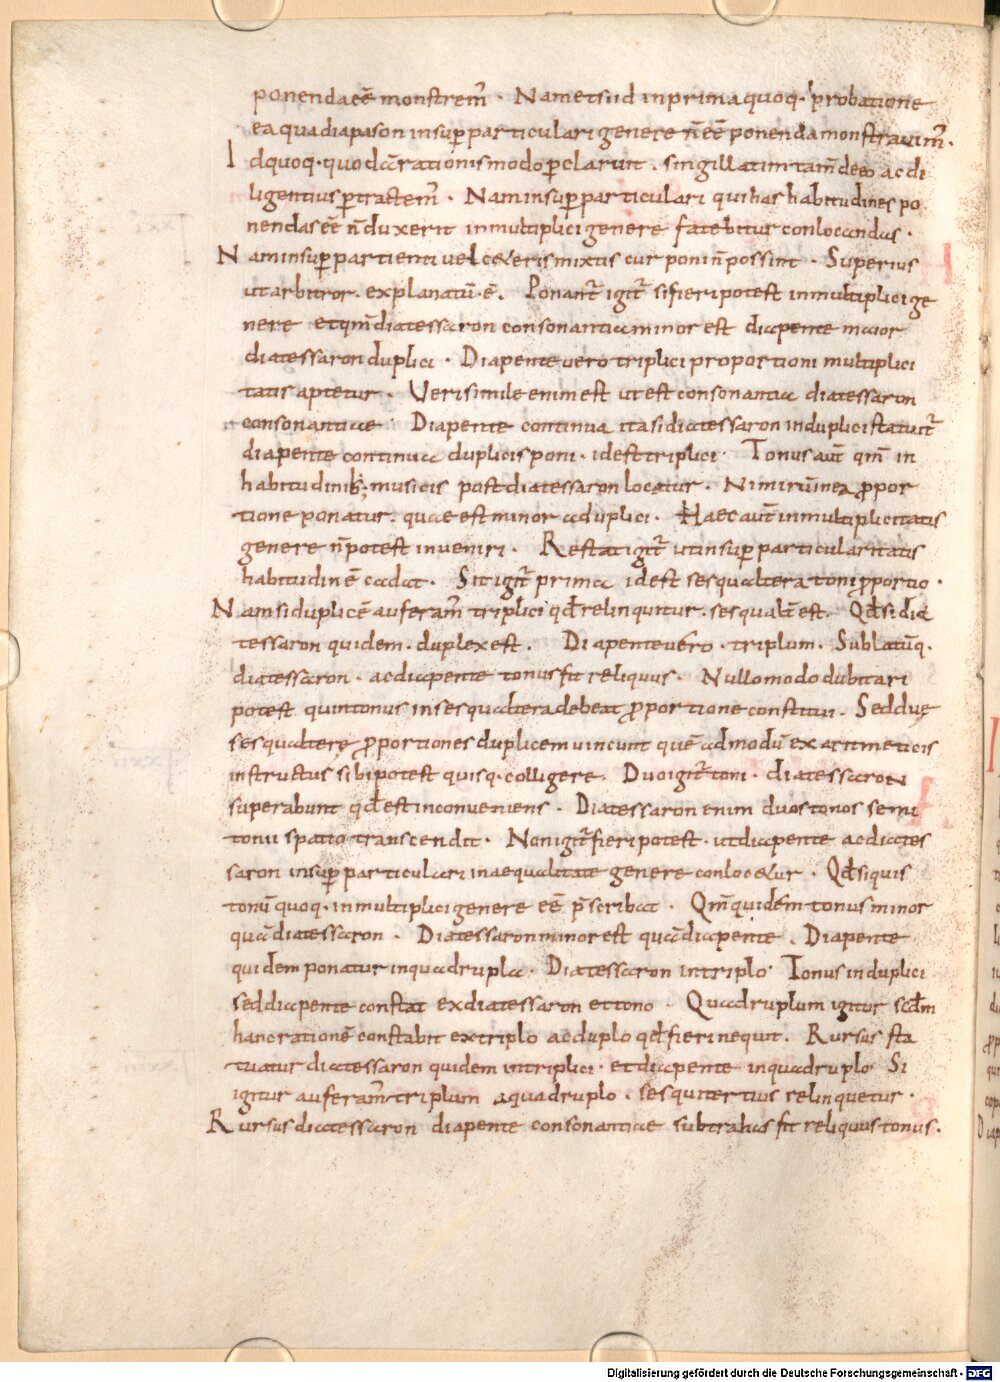 ponenda eē monstrem᷒ · Nametsi id in prima quoq· probatione
ea qua diapason in sup̱particulari genere n̄ eē ponenda monstrauim᷒.
Id quoq· quodā rationis modo p̱claruit . singillatim tam̄ de eo ac di
ligentius p̱tractem᷒ . Nam in sup̱particulari qui has habitudines po
nendas eē n̄ duxerit in multiplici genere fatebitur conlocandas .
Nam in sup̱partienti uel ceteris mixtis cur poni n̄ possint . Superius
ut arbitror . explanatū·ē. Ponant᷒ igit᷒ si fieri potest in multiplici ge
nere et qm̄ diatessaron consonantia minor est diapente maior
diatessaron duplici . Diapente uero triplici proportioni multiplici
tatis aptetur . Uerisimile enim est ut est consonantia diatessaron
consonantiae Diapente continua ita si diatessaron in duplici statuit᷒
diapente continua duplici sponi . id est triplici· Tonus aut̄ qm̄ in
habitudinib; musicis post diatessaron locatur . Nimirū in ea ꝓpor
tione ponatur . quae est minor a duplici . Haec aut̄ in multiplicitatis
genere n̄ potest inueniri . Restat igit᷒ ut in sup̱particularitatis
habitudinē cadat . Sit igit᷒ prima id est sesqualtera toni ꝓportio .
Nam si duplicē auferam᷒ triplici qđ relinquitur . sesqualt̄ est. Qđ si dia
tessaron quidem . duplex est . Diapente uero . triplum . Sublatūq·
diatessaron . ac diapente tonus fit reliquus . Nullo modo dubitari
potest quin tonus in sesqualtera debeat ꝓportione constitui . Sed duę
sesqualterę ꝓportiones duplicem uincunt quē admodū ex arimeticis
instructus sibi potest quisq· colligere . Duo igit᷒ toni . diatessaron
superabunt qđ est inconueniens . Diatessaron enim duos tonos semi
tonii spatio transcendit . Non igit᷒ fieri potest . ut diapente ac diates
saron in sup̱particulari inaequalitate genere conlocetur . Qđ si quis
tonū quoq· in multiplici genere eē p̄scribat . Qm̄ quidem tonus minor
quā diatessaron . Diatessaron minor est quā diapente . Diapente
quidem ponatur in quadrupla . Diatessaron in triplo· Tonus in duplici
sed diapente constat ex diatessaron et tono . Quadruplum igitur scđm
hanc rationē constabit ex triplo ac duplo qđ fieri nequit . Rursus sta
tuatur diatessaron quidem in triplici . et diapente in quadruplo Si
igitur auferam᷒ triplum a quadruplo . sesquitertius relinquetur .
Rursus diatessaron diapente consonantiae subtrahas fit reliquus tonus .
Digitalisierung gefördert durch die Deutsche Forschungsgemeinschaft - DFG